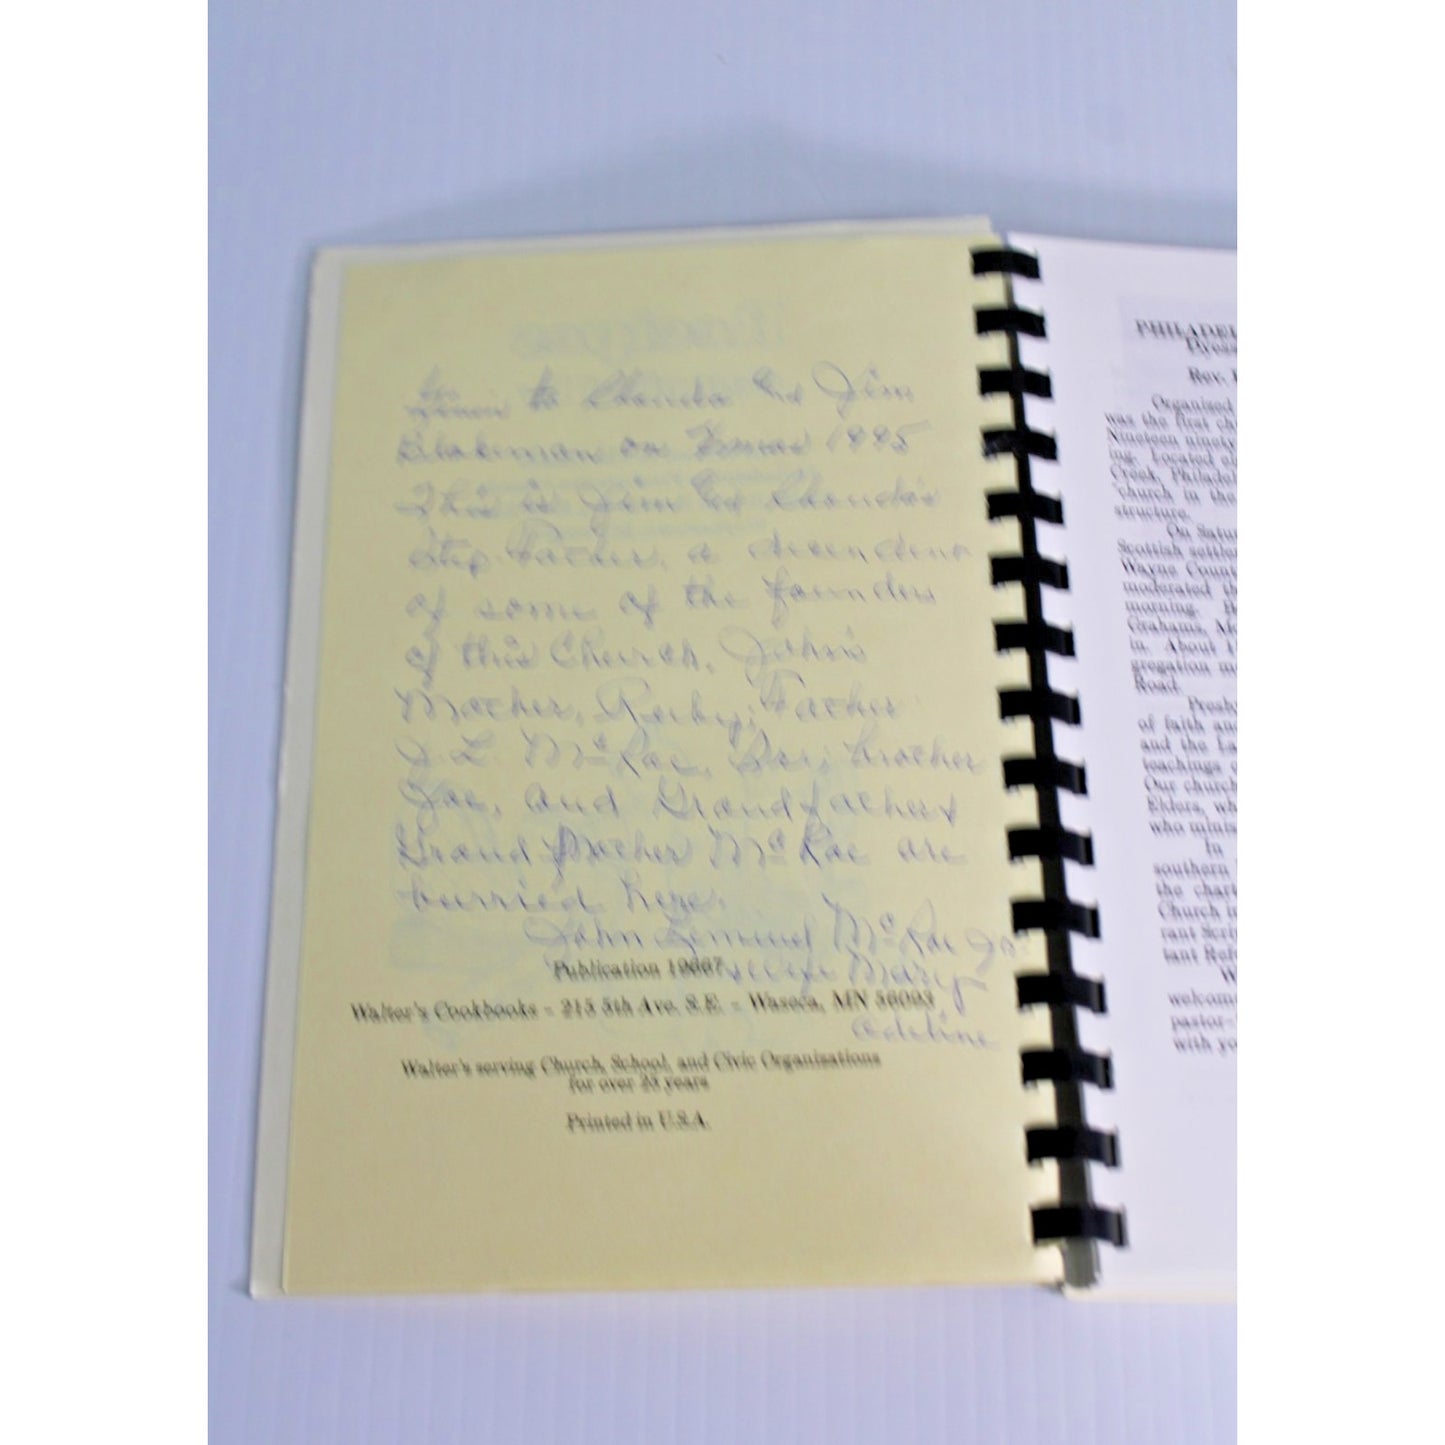 to Rhonda and Jim
Blakeman on Xmas 1995
This is Jim and Rhonda's
Step Father, a decendent
of some of the founders
of this Church, John's
Mother, Ruby; Father
J. L. McRae, brother
Joe, and Grandfather &
Grand Mother McRae are
burried here.
John McRae Jr.
wife Mary
Adeline
Publication 19667
Walter's Cookbooks – 215 5th Ave. S.E. – Waseca, MN 56093
Walter's serving Church, School, and Civic Organizations
for over 25 years
Printed in U.S.A.
PHILADEL
Rev.
Organized
was the first ch
Nineteen ninety
ing. Located
Creek, Philadel
"church in the
structure.
On Satu
Scottish settle
Wayne Count
moderated th
morning.
Grahams, Mc
in. About 1
gregation m
Road.
Presby
of faith and
and the La
teachings o
Our church
Elders, wh
who minis
In
southern
the chart
Church i
rant Scri
tant Refo
W
welcome
pastor
with yo